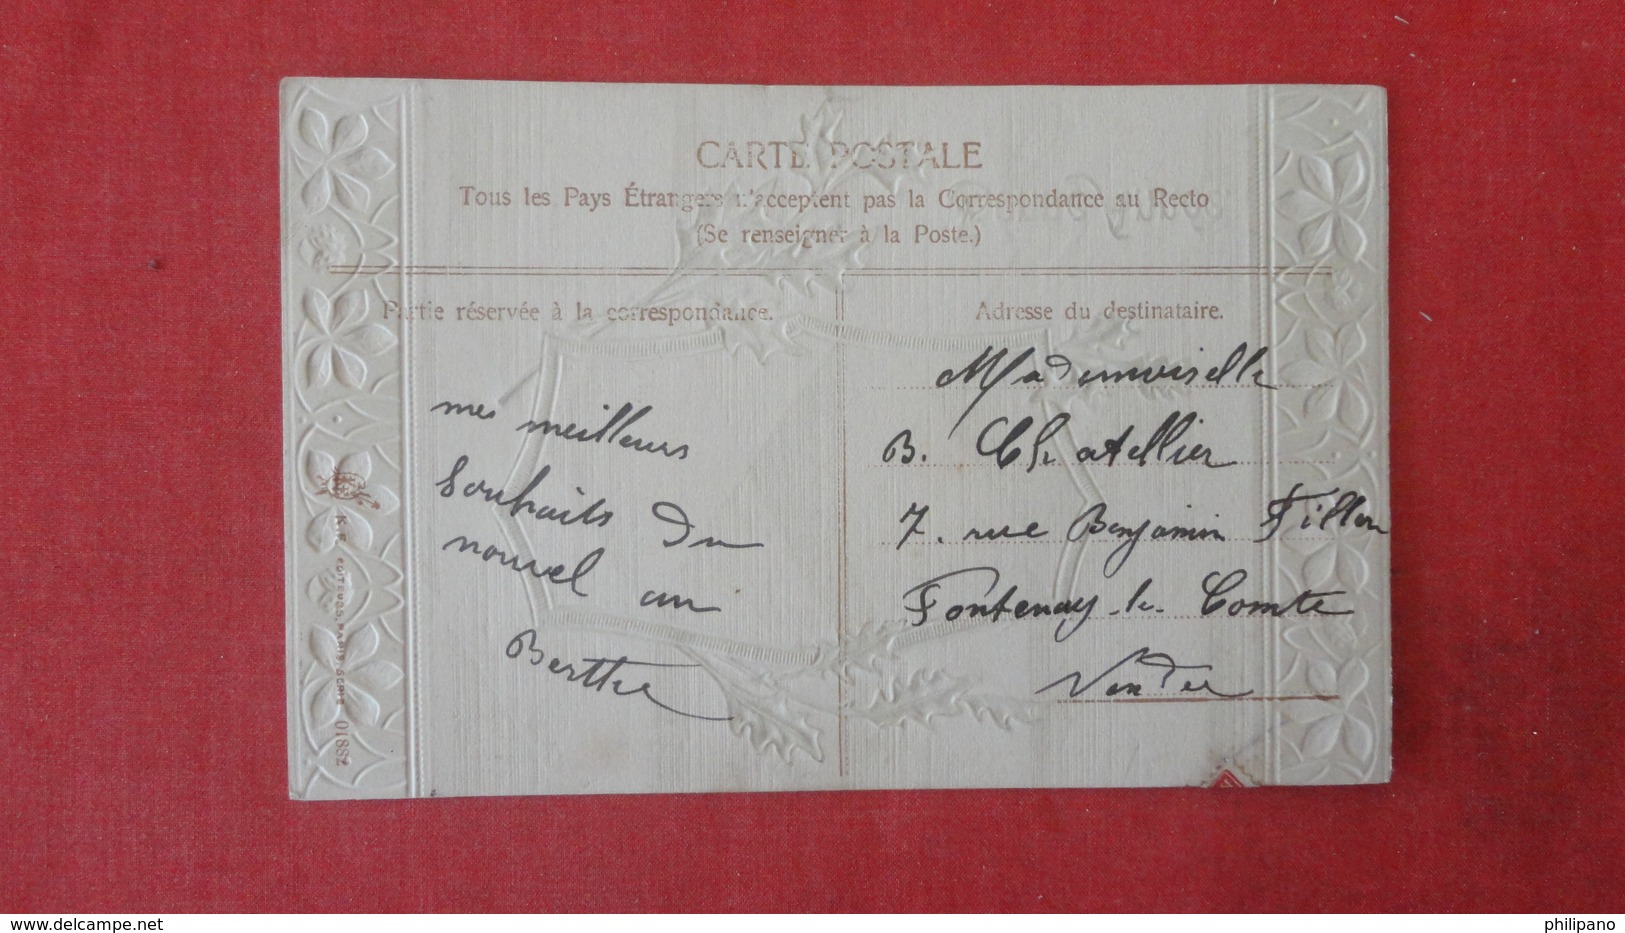 CARTE POSTALE
Tous les Pays Étrangers n'acceptent pas la Correspondance au Recto
(Se renseigner à la Poste.)
Partie réservée à la correspondance.
mes meilleurs
souhaits du
nouvel an
Berthe
Adresse du destinataire.
Mademoiselle
B. Chatellier
7. rue Benjamin Fillon
Fontenay-le-Comte
Vendée
K.F. EDITEURS, PARIS, SÉRIE 01882
www.delcampe.net
philipano